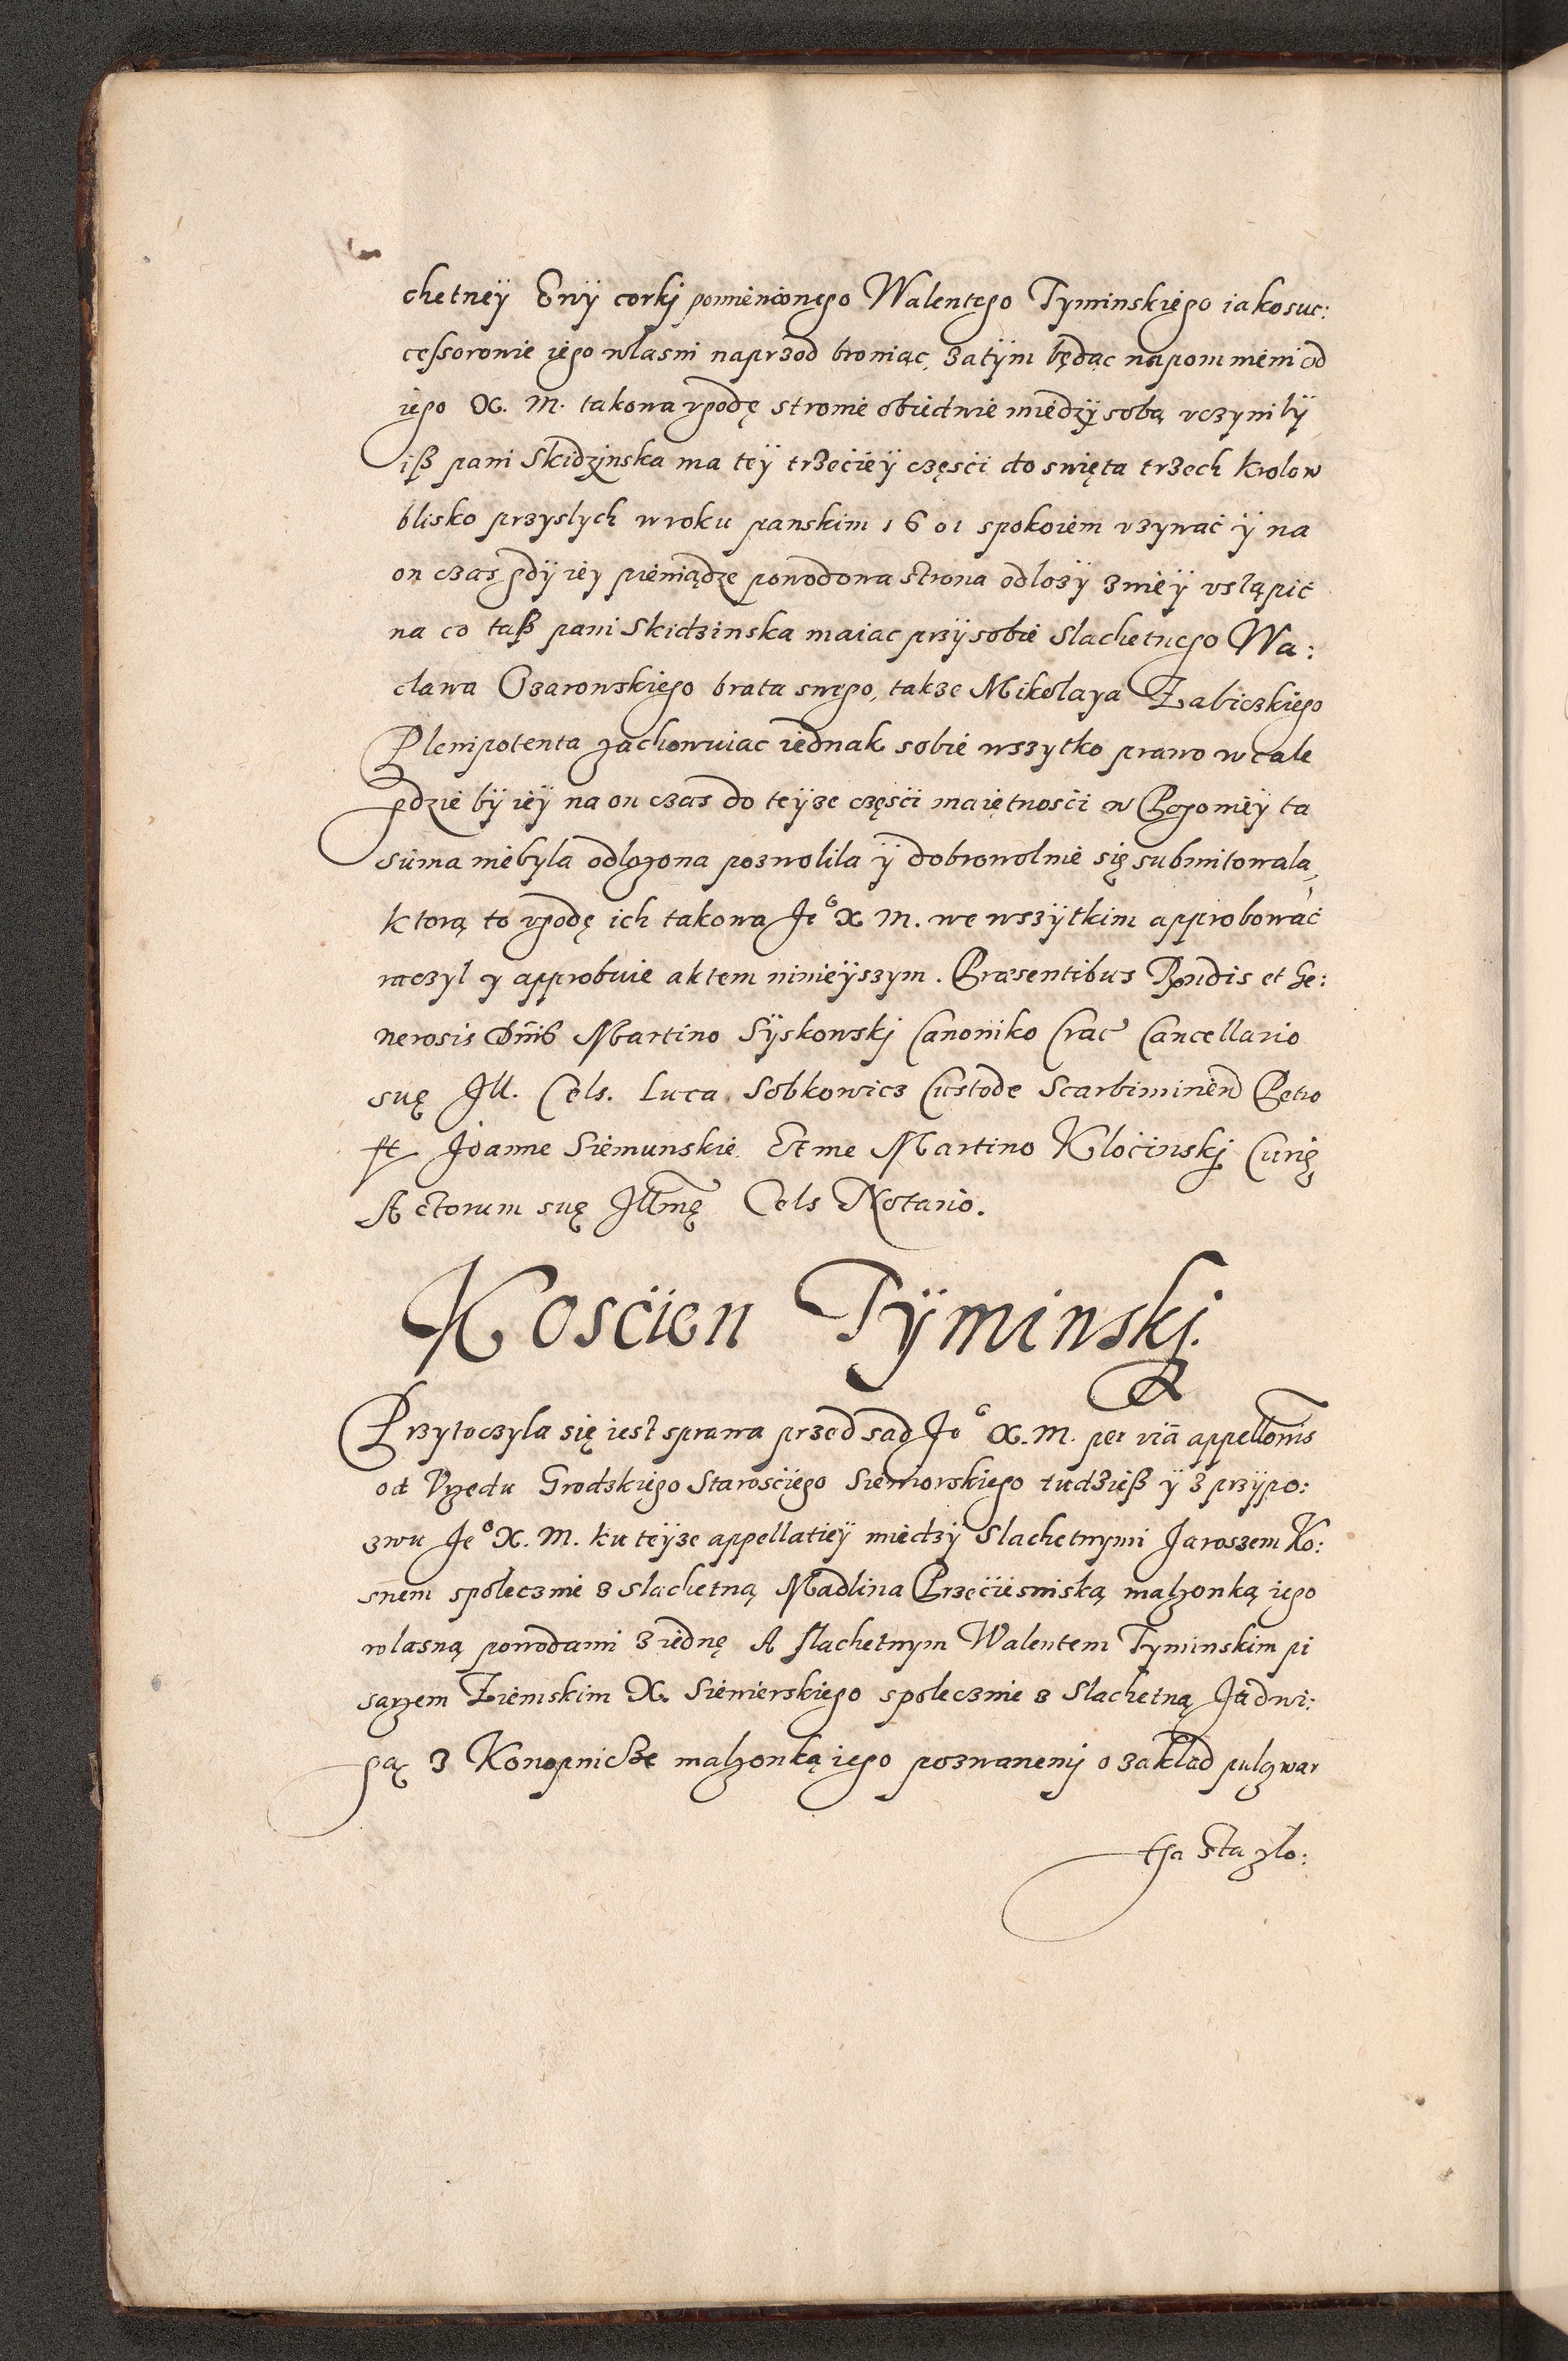 chetneÿ Ewÿ corkj pomienionego Walentego Tyminskiego iako suc:
cessorowie iego wlasni naprzod broniąc, zatÿm będąc napommieni od
iego X. M. takowa vgodę stronie obiedwie miedzÿ sobą vczynilÿ
iß pani Skidzinska ma teÿ trzecieÿ części do swięta trzech Krolow
blisko przyslych w roku panskim 1601 spokoiem vzywać ÿ na
on czas gdÿ iey pieniądze powodowa strona odlozÿ znieÿ vstąpić
na co taß pani Skidzinska maiac przÿ sobie Slachetnego Wa:
clawa Ozarowskiego brata swego, takze Mikolaya Zabiczkiego
Plenipotenta zachowuiac iednak sobie wszytko prawo w cale
gdzie bÿ ieÿ na on czas do teÿze części maiętności w Pogonieÿ ta
suma niebyla odlozona pozwolila ÿ dobrowolnie się submitowala,
ktorą to vgodę ich takowa Jeo X M. we wszÿtkim approbować
raczyl y approbuie aktem ninieÿszym. Præsentibus Rndis et Ge:
nerosis Dnis Martino Sÿskowskj Canoniko Crac Cancellario
suę Ill. Cels. Luca Sobkowicz Custode Scarbimirien Petro
et Joanne Siemunskie Et me Martino Klocinskj Curię
Actorum suę Illmę Cels Notario.
Koscien Tÿminskj.
Przytoczyla się iest sprawa przed sad Jeo X. M. per viā appellonis
od Vrzedu Grodskiego Starosciego Siewiorskiego tudzieß ÿ z przÿpo:
zwu Jeo X. M. ku teÿze appellatieÿ miedzÿ Slachetnymi Jaroszem Ko:
snem spolecznie z Slachetną Madlina Przecieszniską malzonką iego
wlasną powodami z iednę A slachetnym Walentem Tyminskim pi
sarzem Ziemskim X. Siewierskiego spolecznie z Slachetną Jadwi:
gą z Konopnicze malzonką iego pozwanemj o zaklad pulgwar
tha sta zlo: